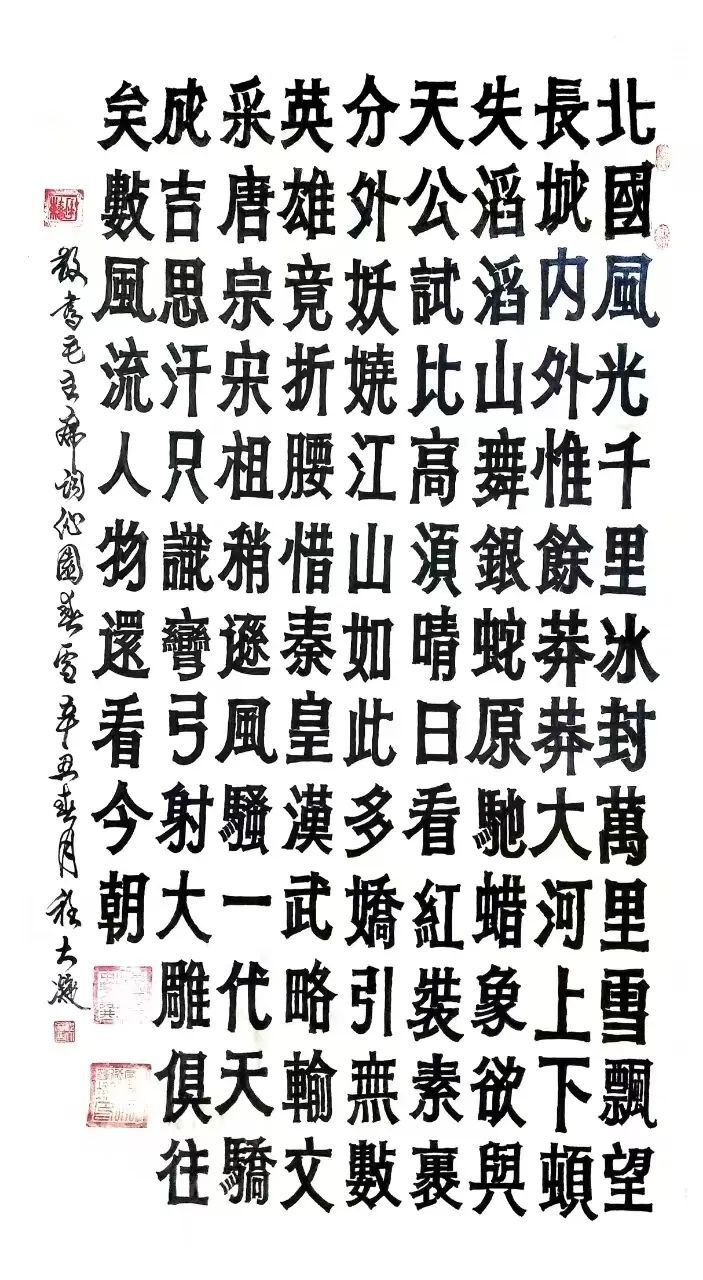 北國風光千里冰封萬里雪飄望
長城内外惟餘莽莽大河上下頓
失滔滔山舞銀蛇原馳蜡象欲與
天公試比高須晴日看紅裝素裹
分外妖嬈江山如此多嬌引無數
英雄竟折腰惜秦皇漢武略輸文
采唐宗宋祖稍遜風騷一代天驕
成吉思汗只識彎弓射大雕俱往
矣數風流人物還看今朝
敬書毛主席詞沁園春雪辛丑春月程大